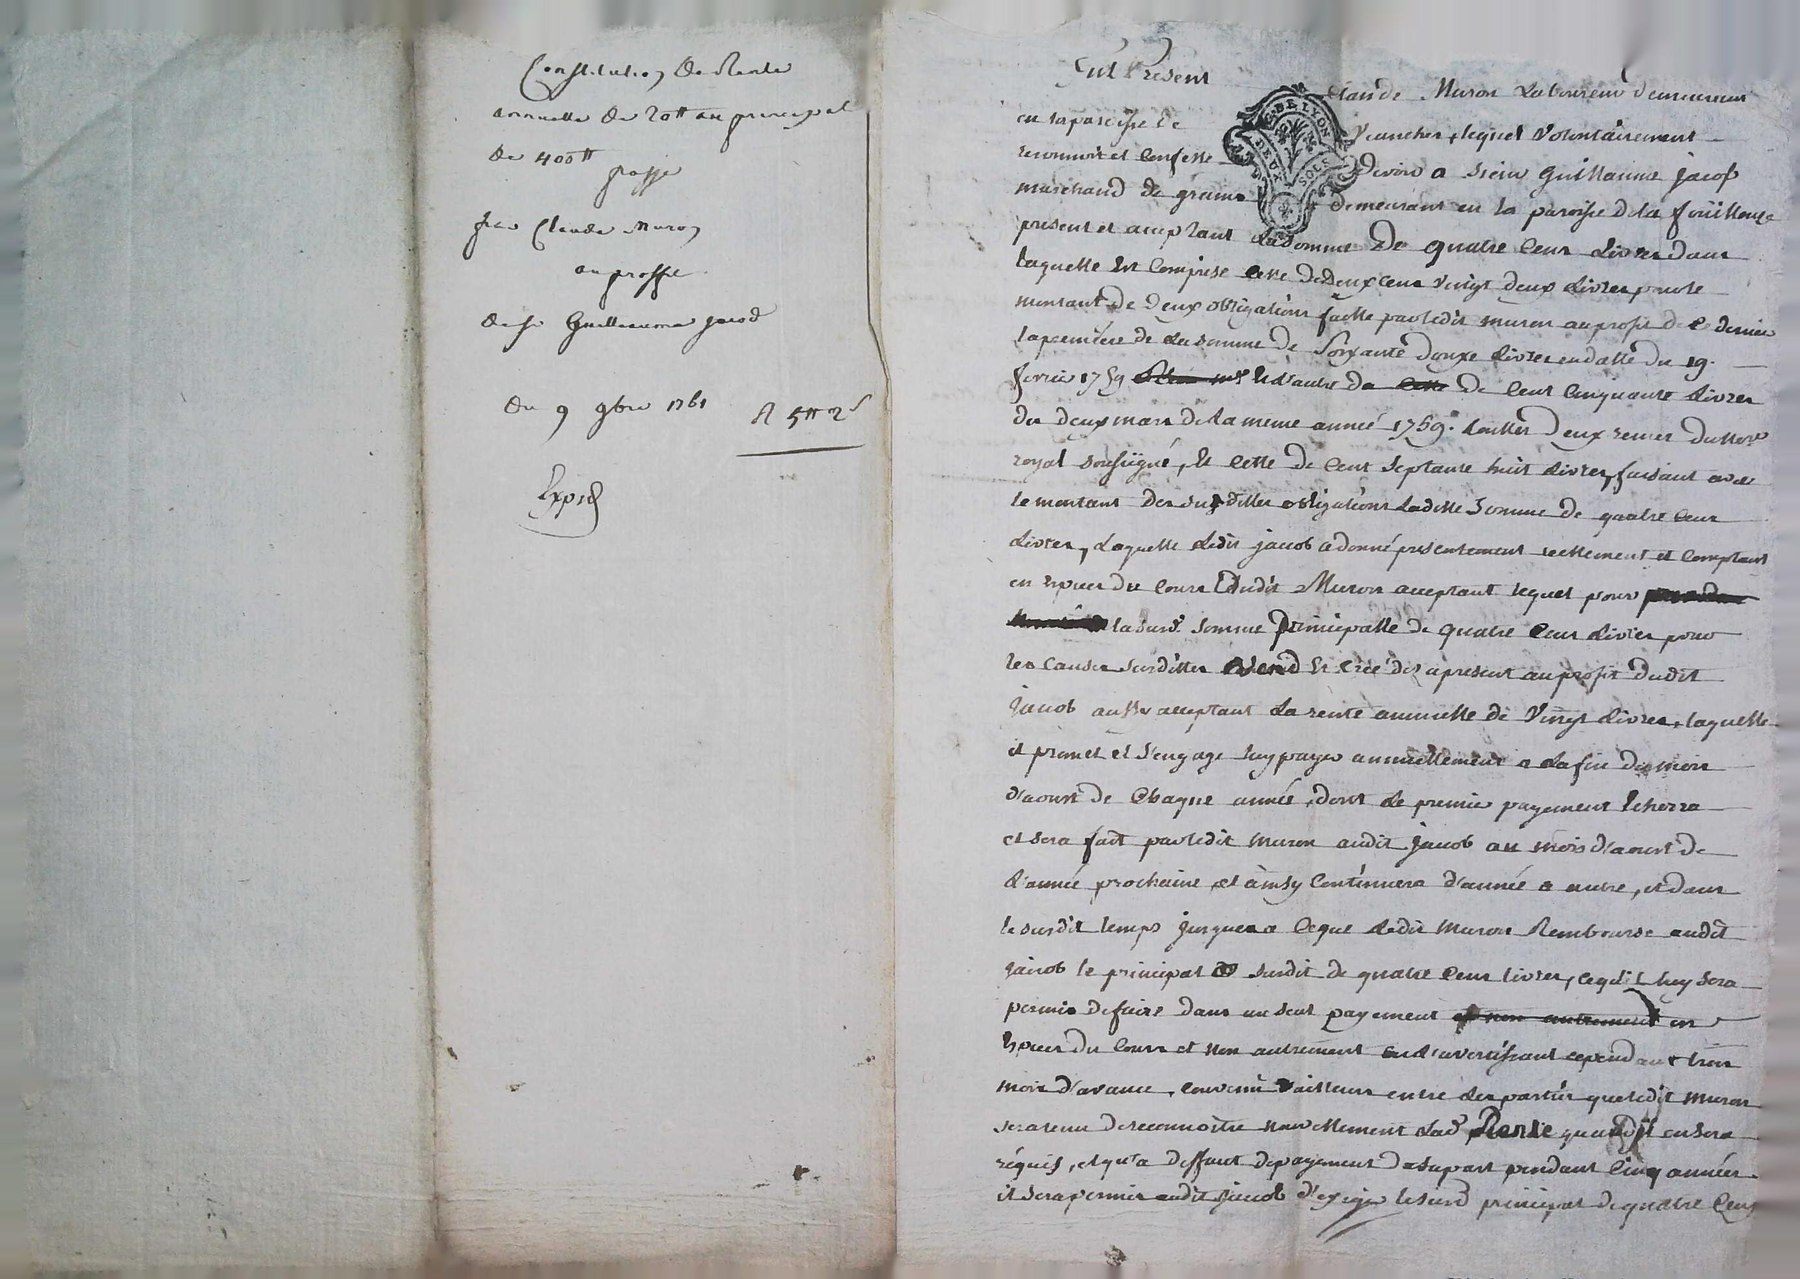 Constitution de Rente
annuelle de 20# au principal
de 400#
passée
par Claude Muron
au proffit
de Sr Guillaume Jacod
du 9 9bre 1761
R 5# 2s
Expié
Fut Present Claude Muron Laboureur demeurant
en la paroisse de Veauche, lequel volontairement
reconnoit et confesse devoir a sieur Guillaume Jacob
marchand de grains demeurant en la paroisse de la fouillouze
present et acceptant la somme De quatre cens Livres dans
laquelle est comprise celle de Deux cens vingt deux Livres pour le
montant de deux obligations faitte par ledit Muron au profit de ce dernier
la première de la somme de soixante douze Livres en datte du 19.
fevrier 1759 et l'autre de de cent cinquante Livres
du deux mars de la meme année 1759. touttes deux reçues du no.re
royal soussigné, et celle de cent septante huit Livres, faisant avec
le montant des susdittes obligations laditte somme de quatre cens
Livres, laquelle ledit Jacob a donné présentement réellement et comptant
en especes du cours audit Muron acceptant lequel pour
la susd. somme principalle de quatre cens Livres pour
les causes susdittes vend et créé dès a present au profit dudit
Jacob aussy acceptant la rente annuelle de vingt Livres, laquelle
il promet et s'engage luy payer annuellement a la fin du mois
d'aoust de chaque année, dont le premier payement echerra
et sera fait par ledit Muron audit Jacob au mois d'aoust de
l'année prochaine, et ainsy continuera d'année a autre, et dans
le susdit temps jusques a ce que ledit Muron Rembourse audit
Jacob le principal susdit de quatre cens livres, ce qu'il luy sera
permis de faire dans un seul payement et non autrement en
especes du cours et non autrement en l'avertissant cependant trois
mois d'avance, convenu d'ailleurs entre les parties que ledit Muron
sera tenu de reconnoitre nouvellement lad. Rente quand il en sera
requis, et qu'a deffaut de payement de sa part pendant cinq années
il sera permis audit Jacob d'exiger le susd principal de quatre cens
DE LYON
DEUX SOLS